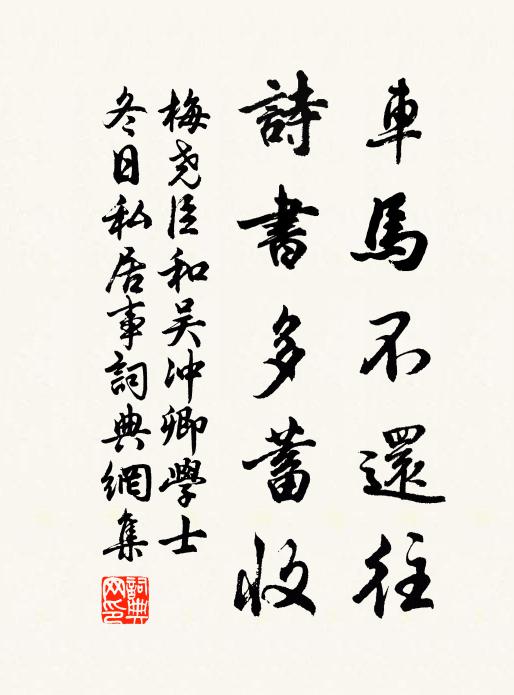 車馬不還往
詩書多蓄收
梅尧臣和吴冲卿學士
冬日私居事詞典網集
詞典網印